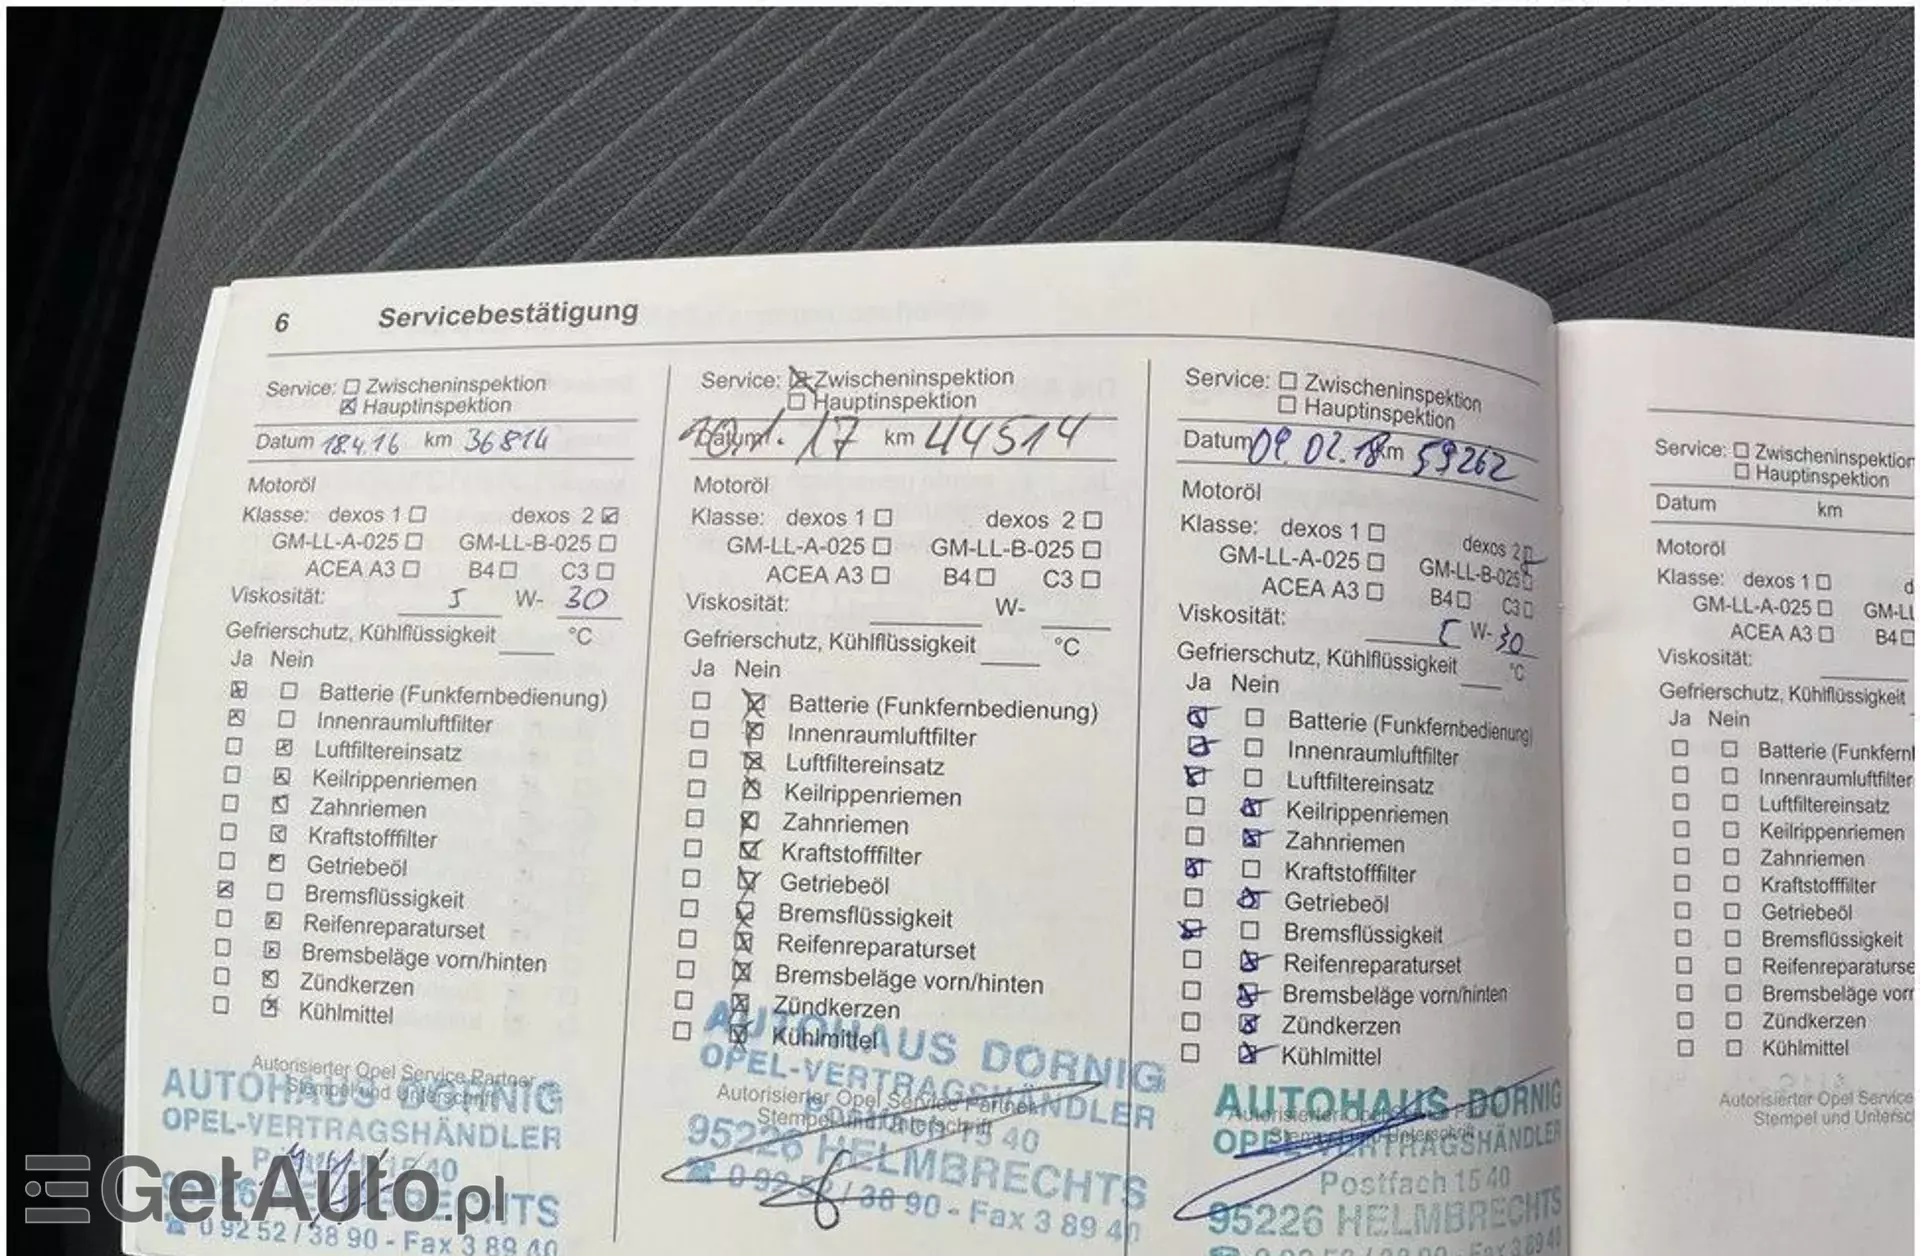 6 Servicebestätigung
Service: Zwischeninspektion
Hauptinspektion
Datum 18.4.16 km 36814
Motoröl
Klasse: dexos 1 dexos 2
GM-LL-A-025 GM-LL-B-025
ACEA A3 B4 C3
Viskosität: 5 W- 30
Gefrierschutz, Kühlflüssigkeit °C
Ja Nein
Batterie (Funkfernbedienung)
Innenraumluftfilter
Luftfiltereinsatz
Keilrippenriemen
Zahnriemen
Kraftstofffilter
Getriebeöl
Bremsflüssigkeit
Reifenreparaturset
Bremsbeläge vorn/hinten
Zündkerzen
Kühlmittel
Autorisierter Opel Service Partner
Stempel und Unterschrift
AUTOHAUS DORNIG
OPEL-VERTRAGSHÄNDLER
15 40
HELMBRECHTS
0 92 52 / 38 90 - Fax 3 89 40
Service: Zwischeninspektion
Hauptinspektion
Datum 17 km 44514
Motoröl
Klasse: dexos 1 dexos 2
GM-LL-A-025 GM-LL-B-025
ACEA A3 B4 C3
Viskosität: W-
Gefrierschutz, Kühlflüssigkeit °C
Ja Nein
Batterie (Funkfernbedienung)
Innenraumluftfilter
Luftfiltereinsatz
Keilrippenriemen
Zahnriemen
Kraftstofffilter
Getriebeöl
Bremsflüssigkeit
Reifenreparaturset
Bremsbeläge vorn/hinten
Zündkerzen
Kühlmittel
AUTOHAUS DORNIG
OPEL-VERTRAGSHÄNDLER
Autorisierter Opel Service Partner
Stempel und Unterschrift
15 40
95226 HELMBRECHTS
0 92 52 / 38 90 - Fax 3 89 40
Service: Zwischeninspektion
Hauptinspektion
Datum 09.02.18 km 59262
Motoröl
Klasse: dexos 1 dexos 2
GM-LL-A-025 GM-LL-B-025
ACEA A3 B4 C3
Viskosität: 5 W- 30
Gefrierschutz, Kühlflüssigkeit °C
Ja Nein
Batterie (Funkfernbedienung)
Innenraumluftfilter
Luftfiltereinsatz
Keilrippenriemen
Zahnriemen
Kraftstofffilter
Getriebeöl
Bremsflüssigkeit
Reifenreparaturset
Bremsbeläge vorn/hinten
Zündkerzen
Kühlmittel
AUTOHAUS DORNIG
Autorisierter Opel
Stempel und Unterschrift
OPEL-VERTRAGSHÄNDLER
Postfach 15 40
95226 HELMBRECHTS
Fax 3 89 40
Service: Zwischeninspektion
Hauptinspektion
Datum km
Motoröl
Klasse: dexos 1 d
GM-LL-A-025 GM-LL
ACEA A3 B4
Viskosität:
Gefrierschutz, Kühlflüssigkeit
Ja Nein
Batterie (Funkfern
Innenraumluftfilter
Luftfiltereinsatz
Keilrippenriemen
Zahnriemen
Kraftstofffilter
Getriebeöl
Bremsflüssigkeit
Reifenreparaturse
Bremsbeläge vorn
Zündkerzen
Kühlmittel
Autorisierter Opel Service
Stempel und Untersc
GetAuto.pl